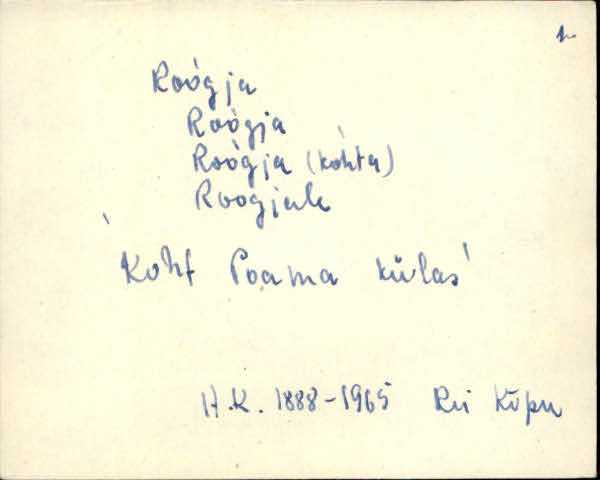 Roógja
Roògja
Roògja (kóhta)
Roogjale
'Koht Poama külas'
H.K. 1888-1965 Rei Kõpu